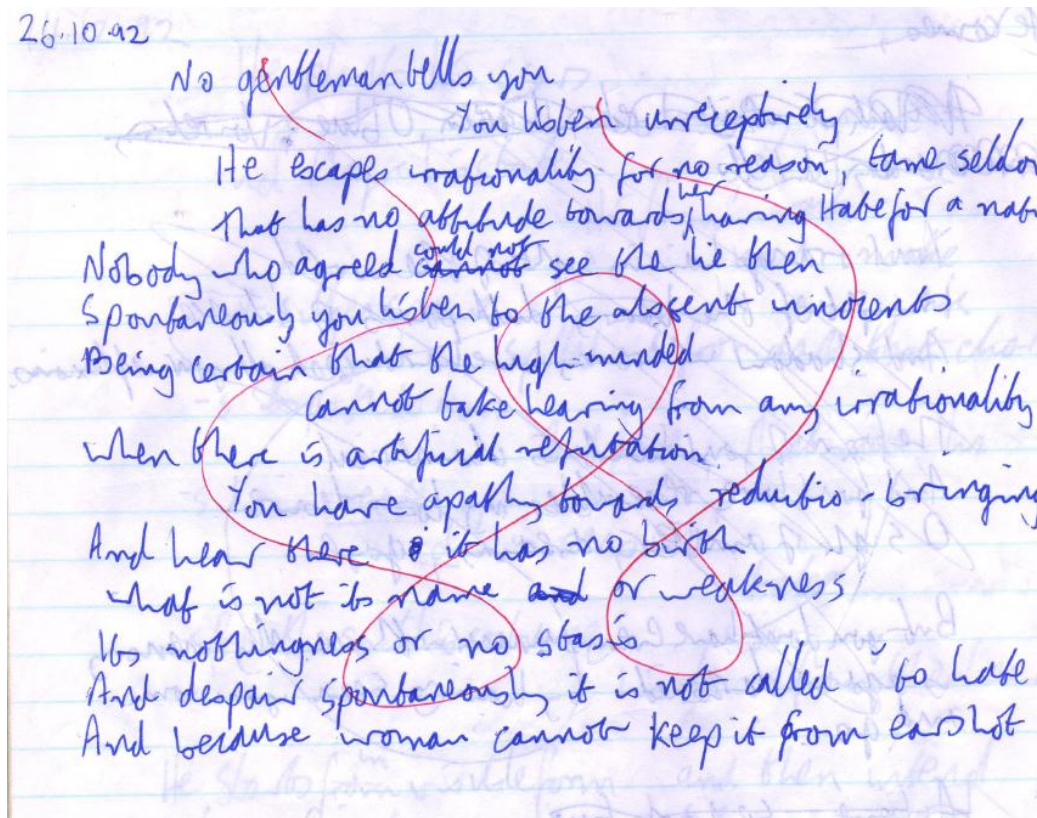 26.10.92
No gentleman tells you
You listen unreceptively
He escapes irrationality for no reason, tame seldom
That has no attitude towards her, having Hate for a nat
Nobody who agreed could not see the lie then
Spontaneously you listen to the absent innocents
Being certain that the high-minded
Cannot take hearing from any irrationality
When there is artificial refutation.
You have apathy towards reductio-bringing
And hear there it has no birth
What is not its name or weakness
Its nothingness or no stasis
And despair spontaneously it is not called to hate
And because woman cannot keep it from earshot